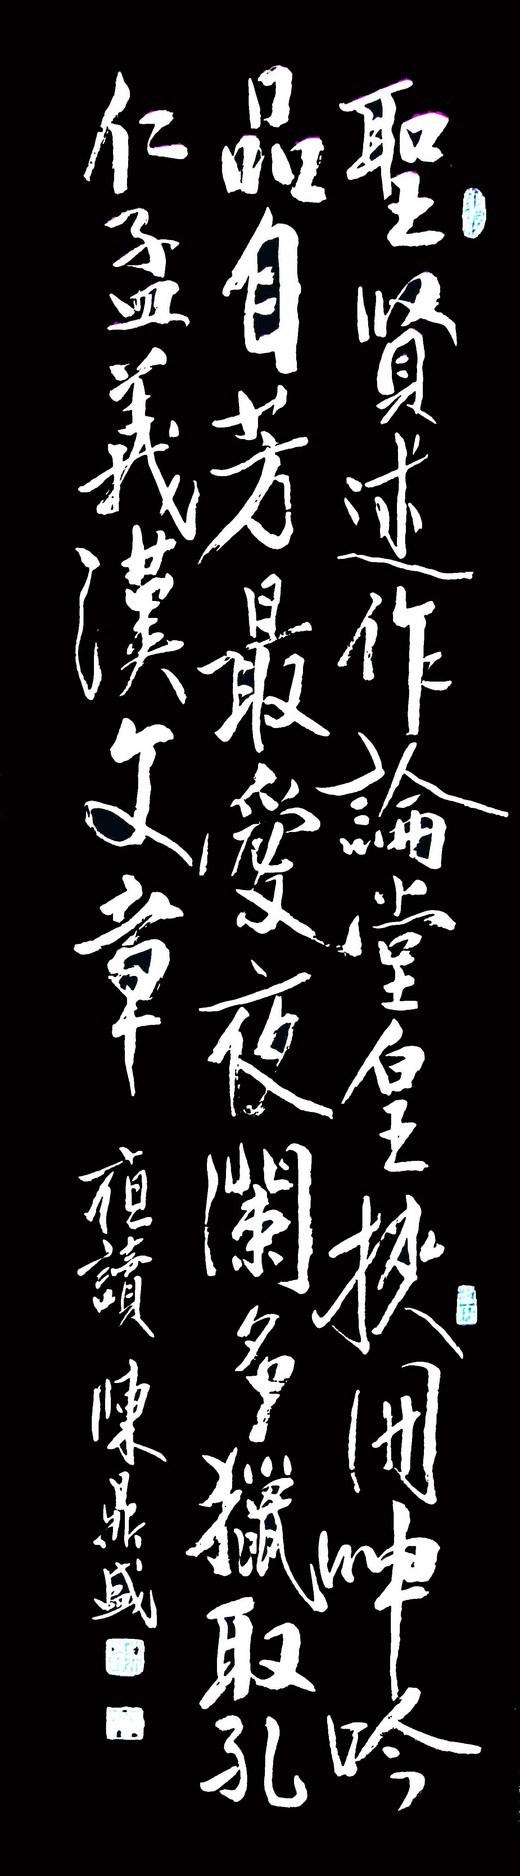 聖賢述作論堂皇挾冊呻吟
品自芳最愛夜闌多獵取孔
仁孟義漢文章
讀 陳鼎盛